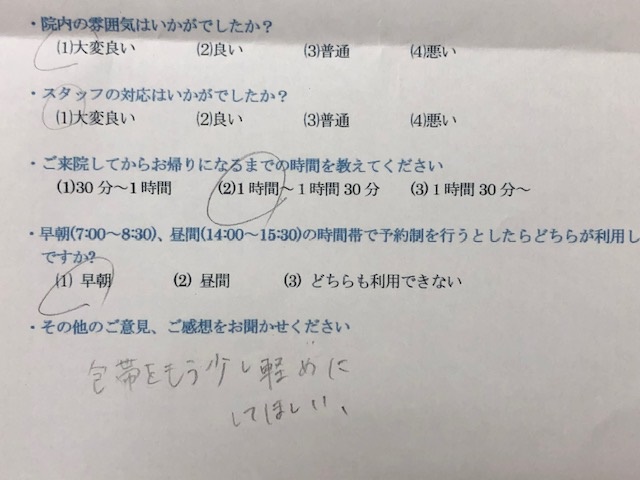 ・院内の雰囲気はいかがでしたか？
(1)大変良い (2)良い (3)普通 (4)悪い
・スタッフの対応はいかがでしたか？
(1)大変良い (2)良い (3)普通 (4)悪い
・ご来院してからお帰りになるまでの時間を教えてください
(1)30分～1時間 (2)1時間～1時間30分 (3)1時間30分～
・早朝(7:00～8:30)、昼間(14:00～15:30)の時間帯で予約制を行うとしたらどちらが利用し
ですか?
(1) 早朝 (2) 昼間 (3) どちらも利用できない
・その他のご意見、ご感想をお聞かせください
包帯をもう少し軽めに
してほしい、